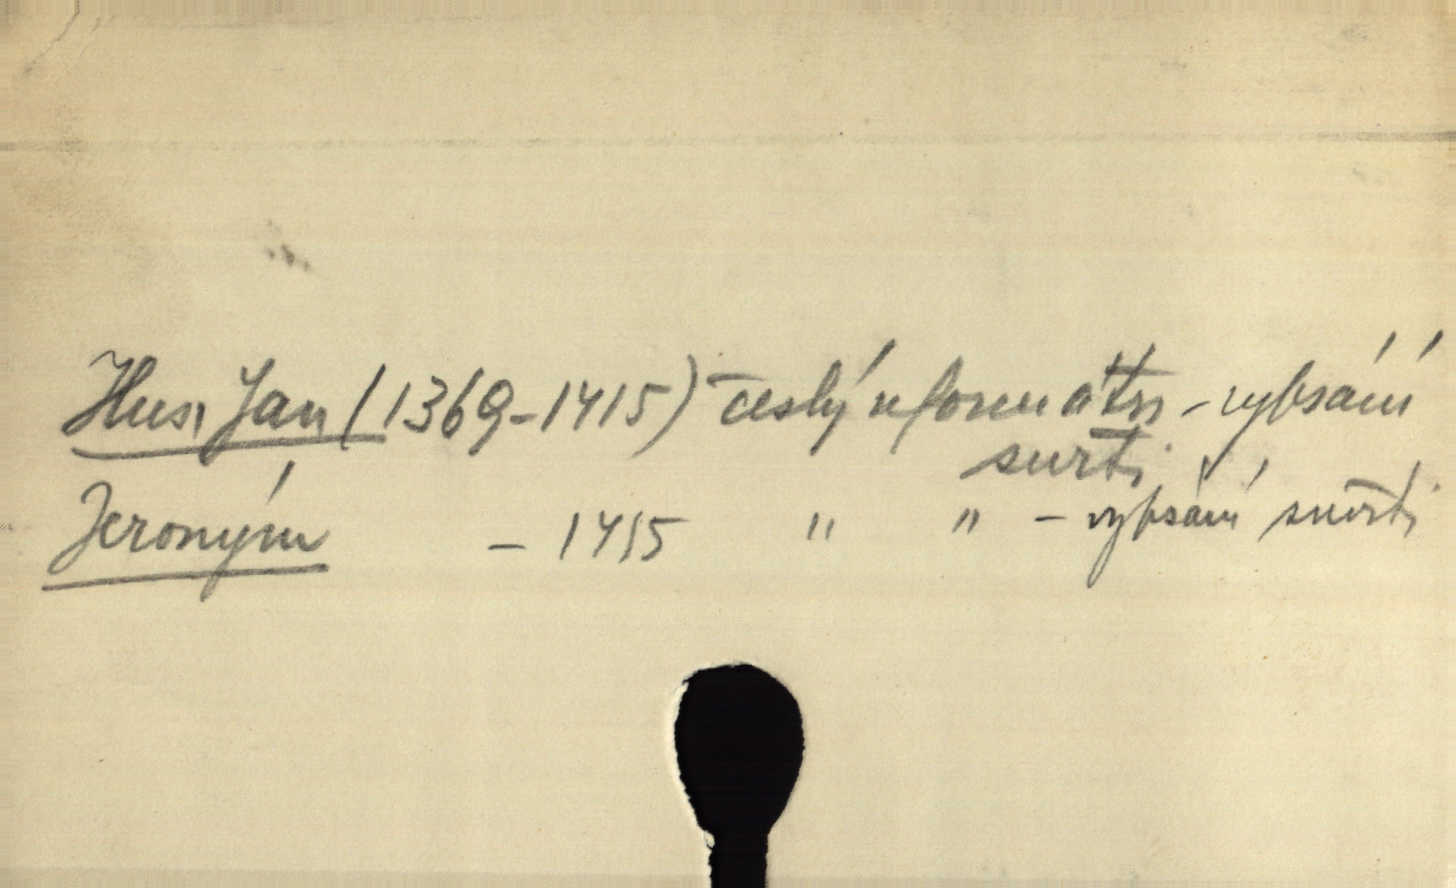 Hus, Jan (1369-1415) český reformátor - vypsání
smrti
Jeroným - 1415 " " - vypsání smrti